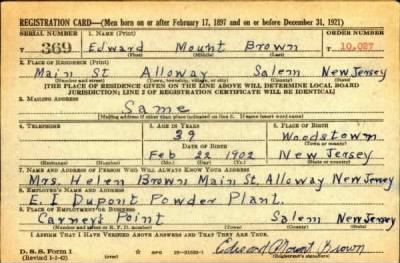 REGISTRATION CARD—(Men born on or after February 17, 1897 and on or before December 31, 1921)
SERIAL NUMBER 1. NAME (Print) ORDER NUMBER
T 369 Edward Mount Brown 10,027
(First) (Middle) (Last)
2. PLACE OF RESIDENCE (Print)
Main St. Alloway Salem New Jersey
(Number and street) (Town, township, village, or city) (County) (State)
[THE PLACE OF RESIDENCE GIVEN ON THE LINE ABOVE WILL DETERMINE LOCAL BOARD
JURISDICTION; LINE 2 OF REGISTRATION CERTIFICATE WILL BE IDENTICAL]
3. MAILING ADDRESS
Same
[Mailing address if other than place indicated on line 2. If same insert word same]
4. TELEPHONE 5. AGE IN YEARS 6. PLACE OF BIRTH
39 Woodstown
DATE OF BIRTH (Town or county)
Feb 22 1902 New Jersey
(Exchange) (Number) (Mo.) (Day) (Yr.) (State or country)
7. NAME AND ADDRESS OF PERSON WHO WILL ALWAYS KNOW YOUR ADDRESS
Mrs. Helen Brown Main St. Alloway New Jersey
8. EMPLOYER'S NAME AND ADDRESS
E. I Dupont Powder Plant.
9. PLACE OF EMPLOYMENT OR BUSINESS
Carney's Point Salem New Jersey
(Number and street or R. F. D. number) (Town) (County) (State)
I AFFIRM THAT I HAVE VERIFIED ABOVE ANSWERS AND THAT THEY ARE TRUE.
D. S. S. Form 1
(Revised 1-1-42) (over) Edward Mount Brown
(Registrant's signature)